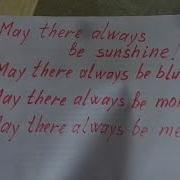 May there always
be sunshine!
May there always be blu
May there always be mo
May there always be me